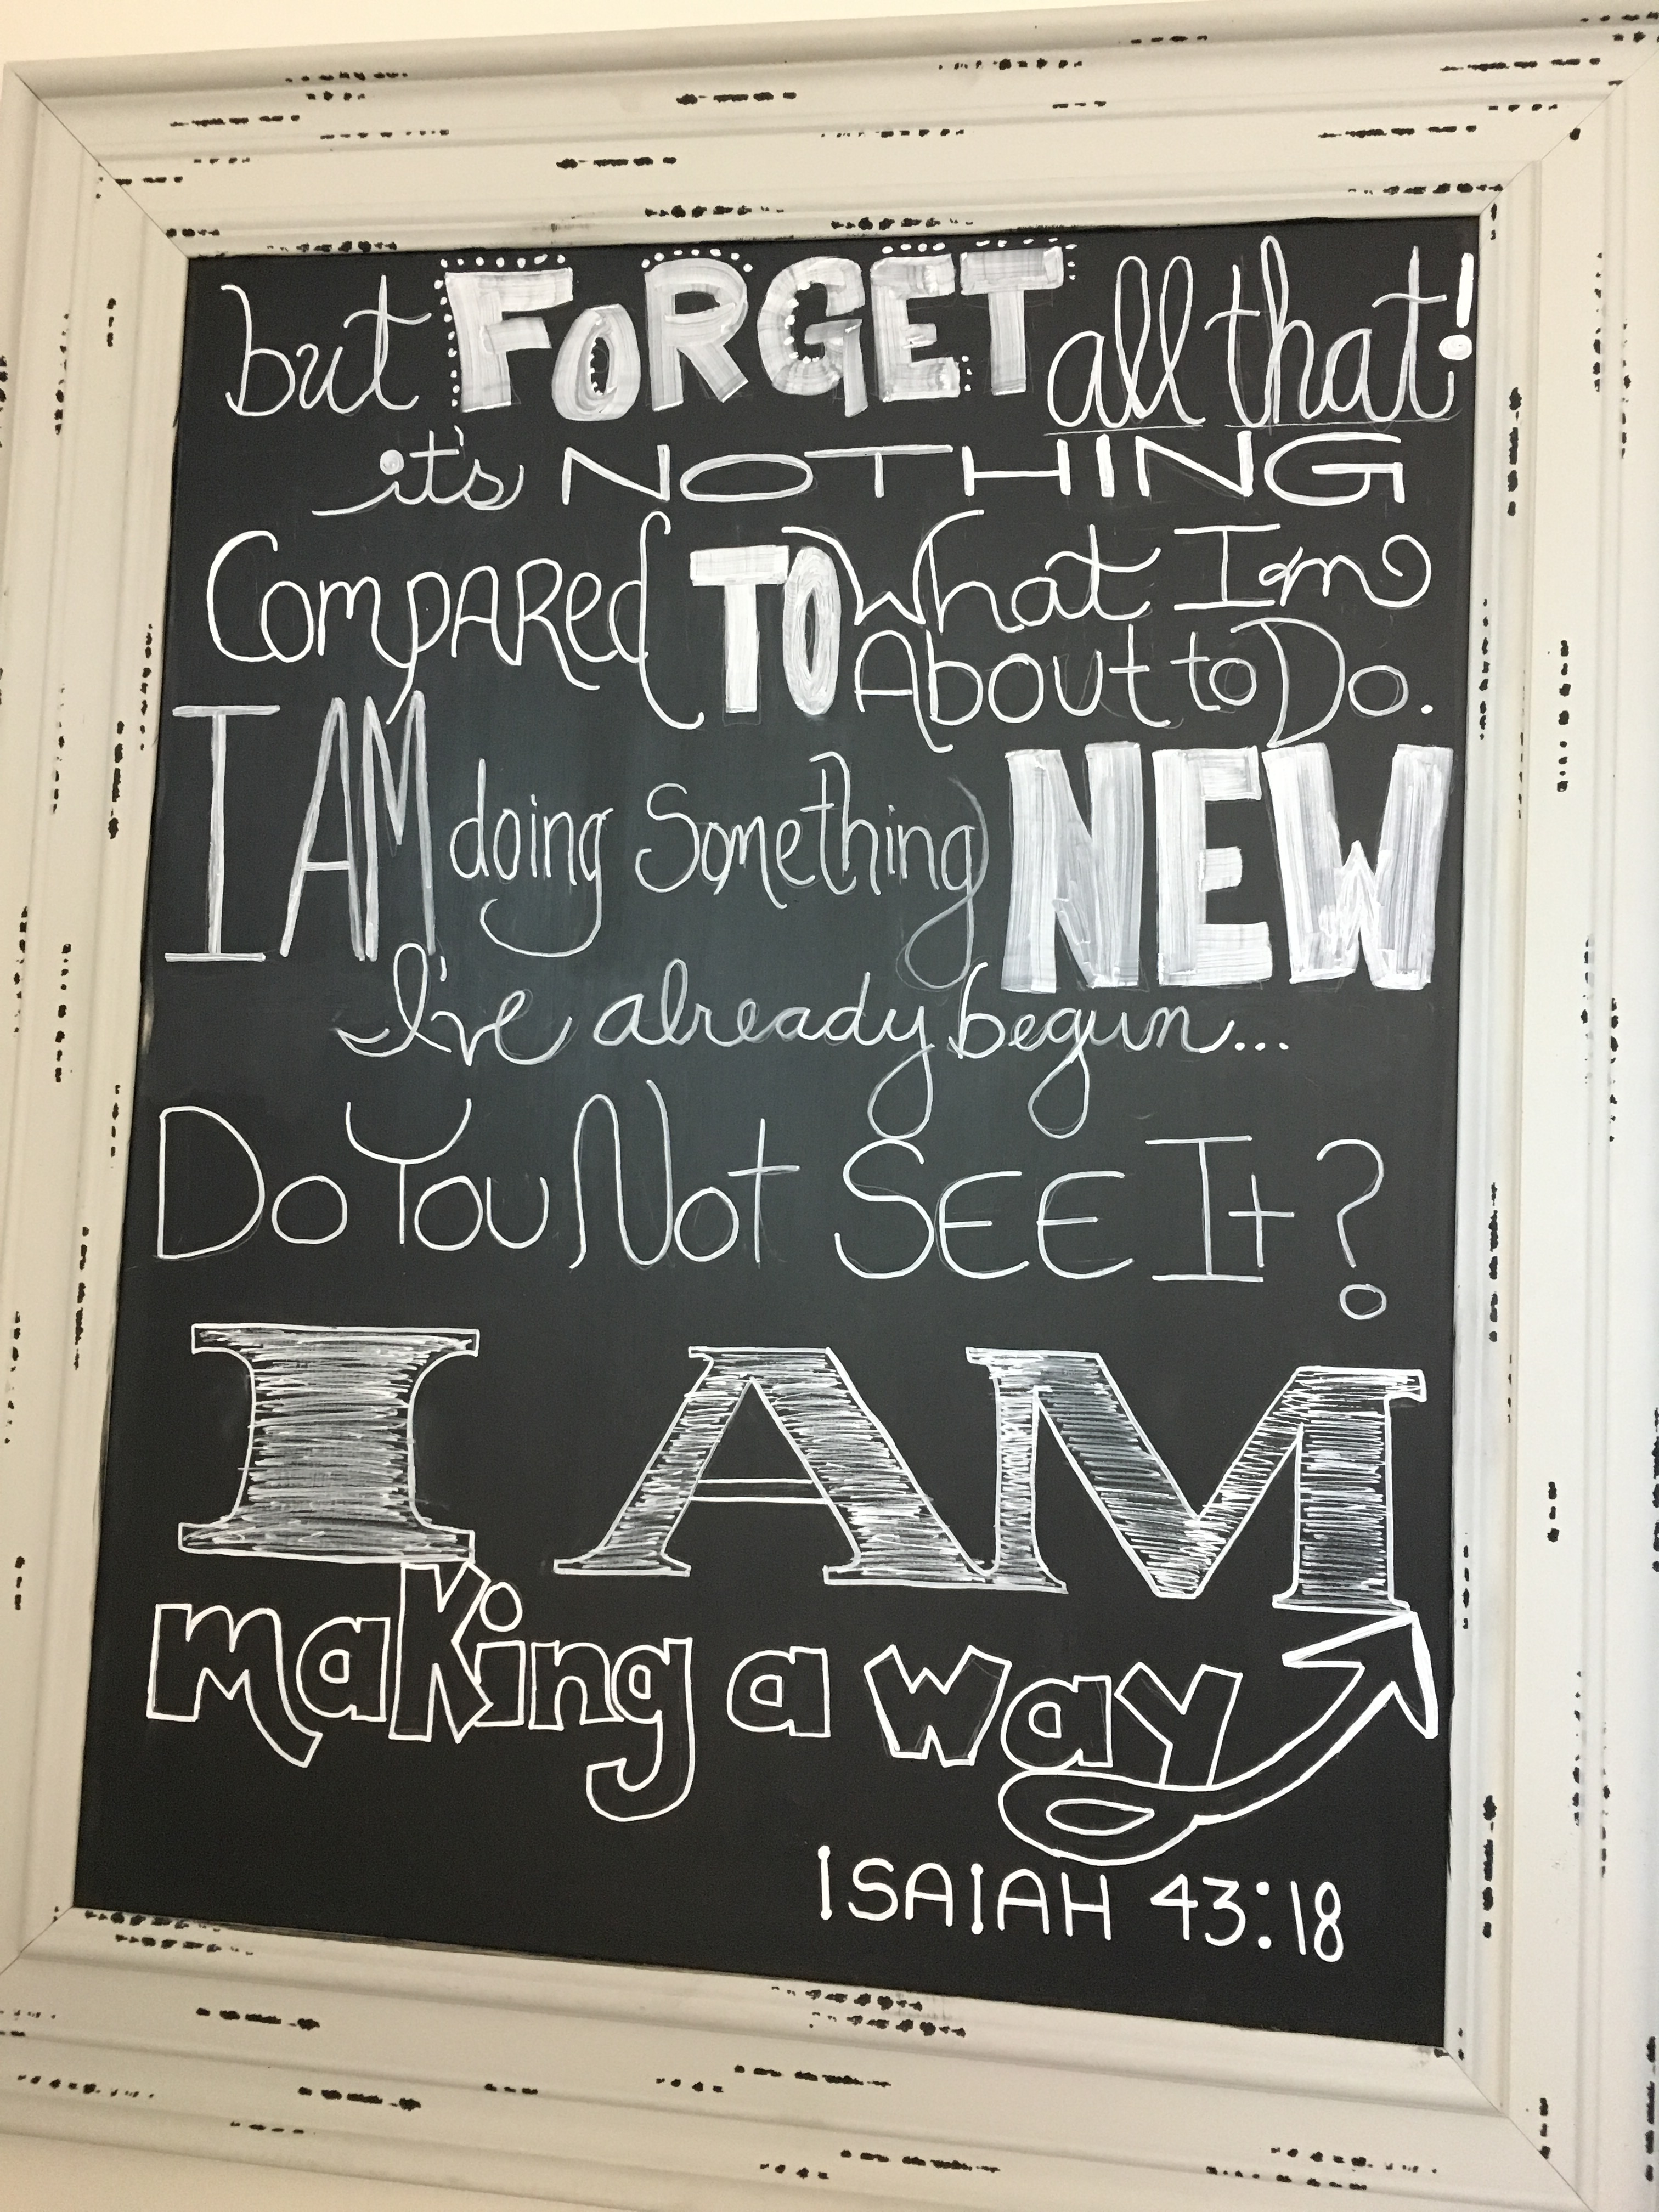 but FORGET all that!
it's NOTHING
Compared TO What I am
About to Do.
I AM doing Something NEW
I've already begun...
Do You Not SEE It?
I AM
making a way
ISAIAH 43:18